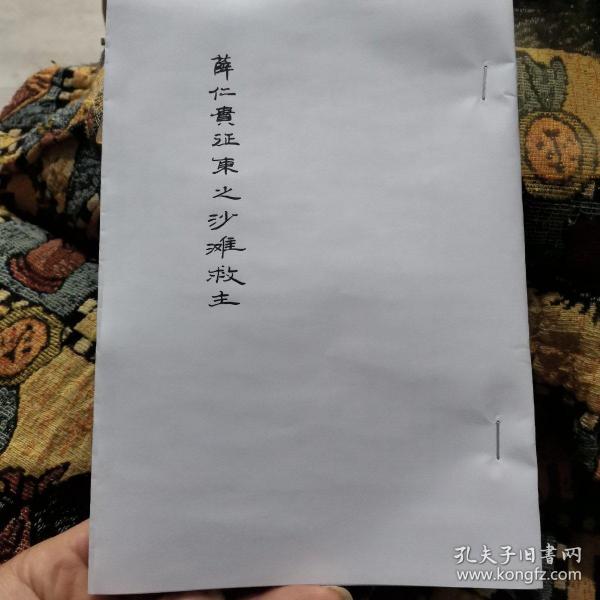 薛仁貴征東之沙滩救主
孔夫子旧書网
www.kongfz.com